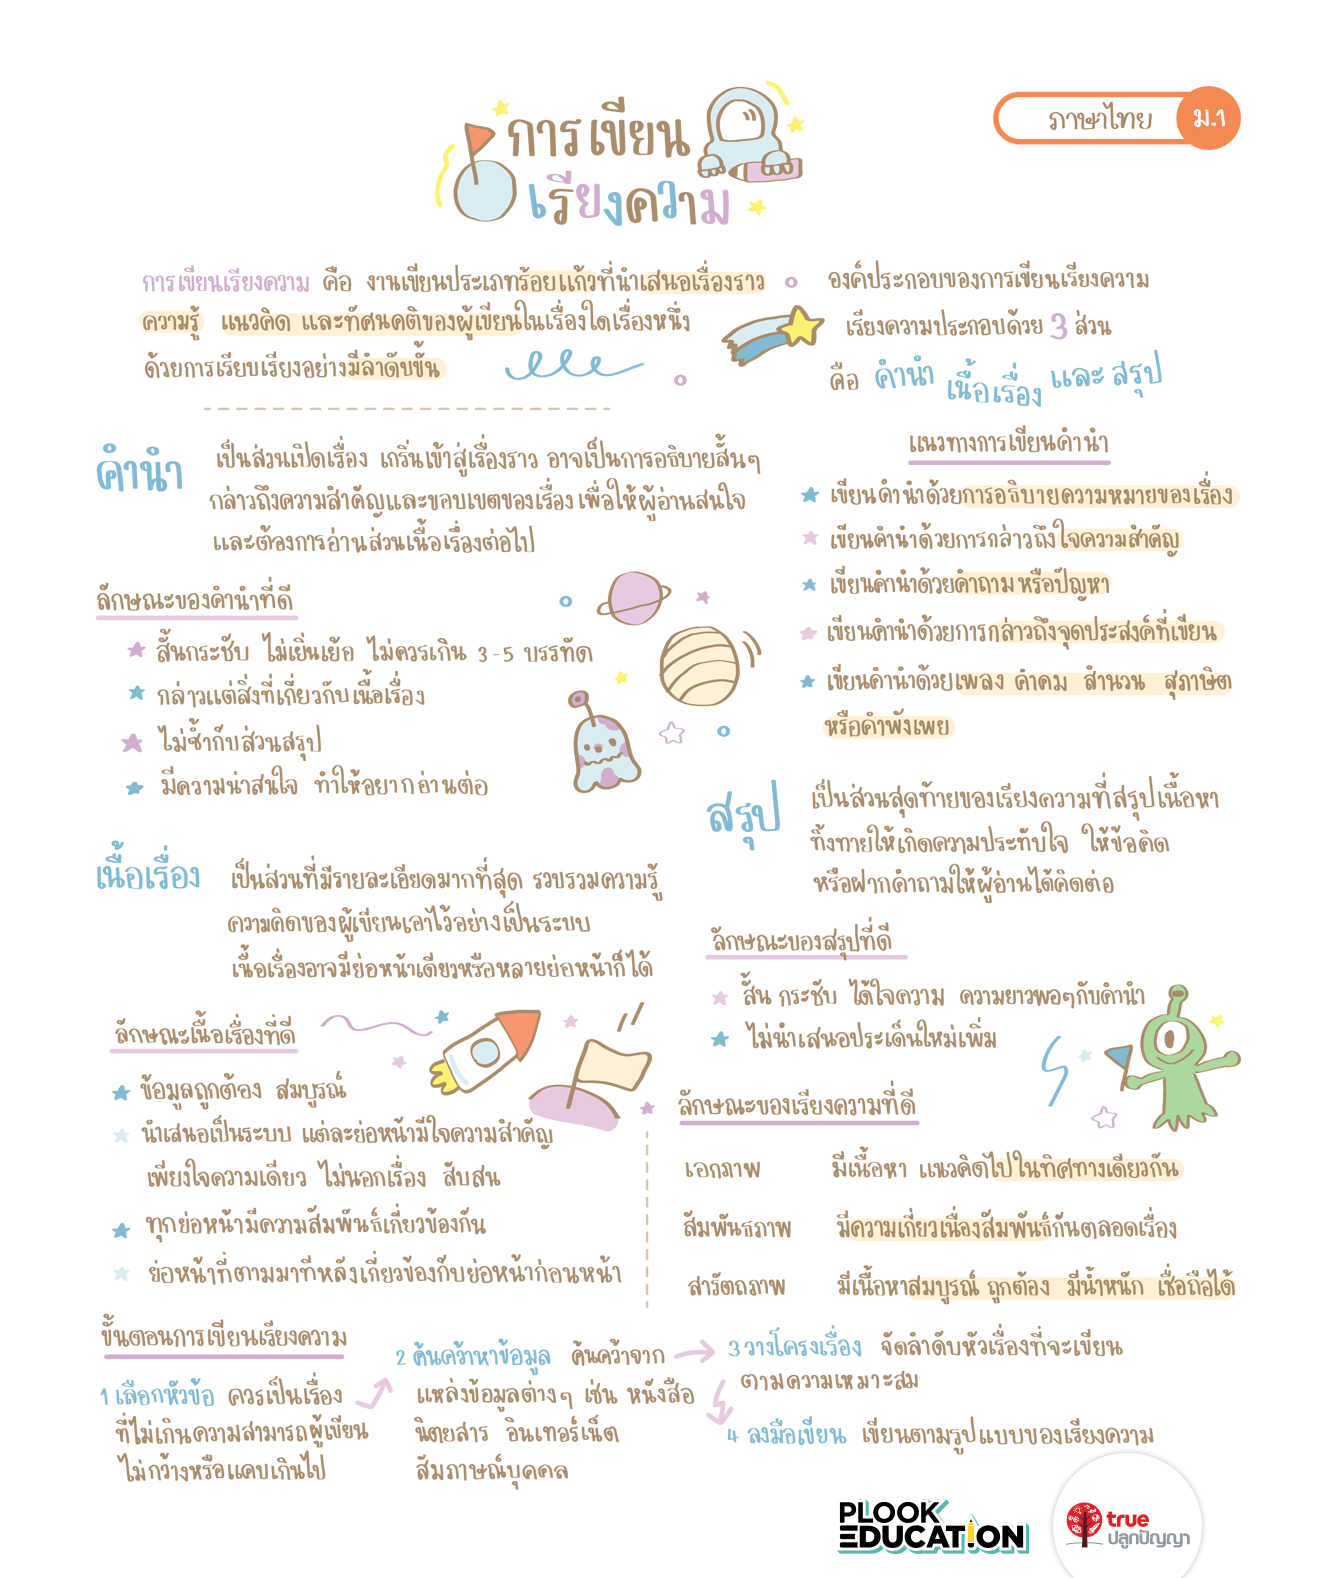 การเขียน
เรียงความ
ภาษาไทย ม.1
การเขียนเรียงความ คือ งานเขียนประเภทร้อยแก้วที่นำเสนอเรื่องราว
ความรู้ แนวคิด และทัศนคติของผู้เขียนในเรื่องใดเรื่องหนึ่ง
ด้วยการเรียบเรียงอย่างมีลำดับขั้น
องค์ประกอบของการเขียนเรียงความ
เรียงความประกอบด้วย 3 ส่วน
คือ คำนำ เนื้อเรื่อง และ สรุป
คำนำ
เป็นส่วนเปิดเรื่อง เกริ่นเข้าสู่เรื่องราว อาจเป็นการอธิบายสั้นๆ
กล่าวถึงความสำคัญและขอบเขตของเรื่อง เพื่อให้ผู้อ่านสนใจ
และต้องการอ่านส่วนเนื้อเรื่องต่อไป
ลักษณะของคำนำที่ดี
สั้นกระชับ ไม่เยิ่นเย้อ ไม่ควรเกิน 3-5 บรรทัด
กล่าวแต่สิ่งที่เกี่ยวกับเนื้อเรื่อง
ไม่ซ้ำกับส่วนสรุป
มีความน่าสนใจ ทำให้อยากอ่านต่อ
แนวทางการเขียนคำนำ
เขียนคำนำด้วยการอธิบายความหมายของเรื่อง
เขียนคำนำด้วยการกล่าวถึงใจความสำคัญ
เขียนคำนำด้วยคำถาม หรือปัญหา
เขียนคำนำด้วยการกล่าวถึงจุดประสงค์ที่เขียน
เขียนคำนำด้วยเพลง คำคม สำนวน สุภาษิต
หรือคำพังเพย
เนื้อเรื่อง
เป็นส่วนที่มีรายละเอียดมากที่สุด รวบรวมความรู้
ความคิดของผู้เขียนเอาไว้อย่างเป็นระบบ
เนื้อเรื่องอาจมีย่อหน้าเดียวหรือหลายย่อหน้าก็ได้
ลักษณะเนื้อเรื่องที่ดี
ข้อมูลถูกต้อง สมบูรณ์
นำเสนอเป็นระบบ แต่ละย่อหน้ามีใจความสำคัญ
เพียงใจความเดียว ไม่นอกเรื่อง สับสน
ทุกย่อหน้ามีความสัมพันธ์เกี่ยวข้องกัน
ย่อหน้าที่ตามมาทีหลังเกี่ยวข้องกับย่อหน้าก่อนหน้า
สรุป
เป็นส่วนสุดท้ายของเรียงความที่สรุปเนื้อหา
ทิ้งทายให้เกิดความประทับใจ ให้ข้อคิด
หรือฝากคำถามให้ผู้อ่านได้คิดต่อ
ลักษณะของสรุปที่ดี
สั้น กระชับ ได้ใจความ ความยาวพอๆกับคำนำ
ไม่นำเสนอประเด็นใหม่เพิ่ม
ลักษณะของเรียงความที่ดี
เอกภาพ มีเนื้อหา แนวคิดไปในทิศทางเดียวกัน
สัมพันธภาพ มีความเกี่ยวเนื่องสัมพันธ์กันตลอดเรื่อง
สารัตถภาพ มีเนื้อหาสมบูรณ์ ถูกต้อง มีน้ำหนัก เชื่อถือได้
ขั้นตอนการเขียนเรียงความ
1 เลือกหัวข้อ ควรเป็นเรื่อง
ที่ไม่เกินความสามารถผู้เขียน
ไม่กว้างหรือแคบเกินไป
2 ค้นคว้าหาข้อมูล ค้นคว้าจาก
แหล่งข้อมูลต่างๆ เช่น หนังสือ
นิตยสาร อินเทอร์เน็ต
สัมภาษณ์บุคคล
3 วางโครงเรื่อง จัดลำดับหัวเรื่องที่จะเขียน
ตามความเหมาะสม
4 ลงมือเขียน เขียนตามรูปแบบของเรียงความ
PLOOK
EDUCATION
true
ปลูกปัญญา